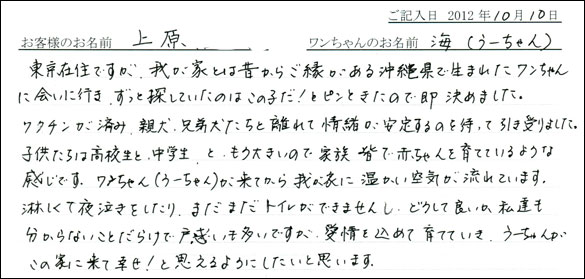 ご記入日 2012年10月10日
お客様のお名前 上原 ワンちゃんのお名前 海(うーちゃん)
東京在住ですが、我が家とは昔からご縁がある沖縄県で生まれたワンちゃん
に会いに行き、ずっと探していたのはこの子だ!とピンときたので即決めました。
ワクチンが済み、親犬、兄弟犬たちと離れて情緒が安定するのを待って引き受りました。
子供たちは高校生と、中学生、と、もう大きいので家族皆で赤ちゃんを育てているような
感じです。ワンちゃん(うーちゃん)が来てから我が家に温かい空気が流れています。
淋しくて夜泣きをしたり、まだまだトイレができませんし、どうして良いか私達も
分からないことだらけで戸惑いも多いですが、愛情を込めて育てていき、うーちゃんが
この家に来て幸せ!と思えるようにしたいと思います。